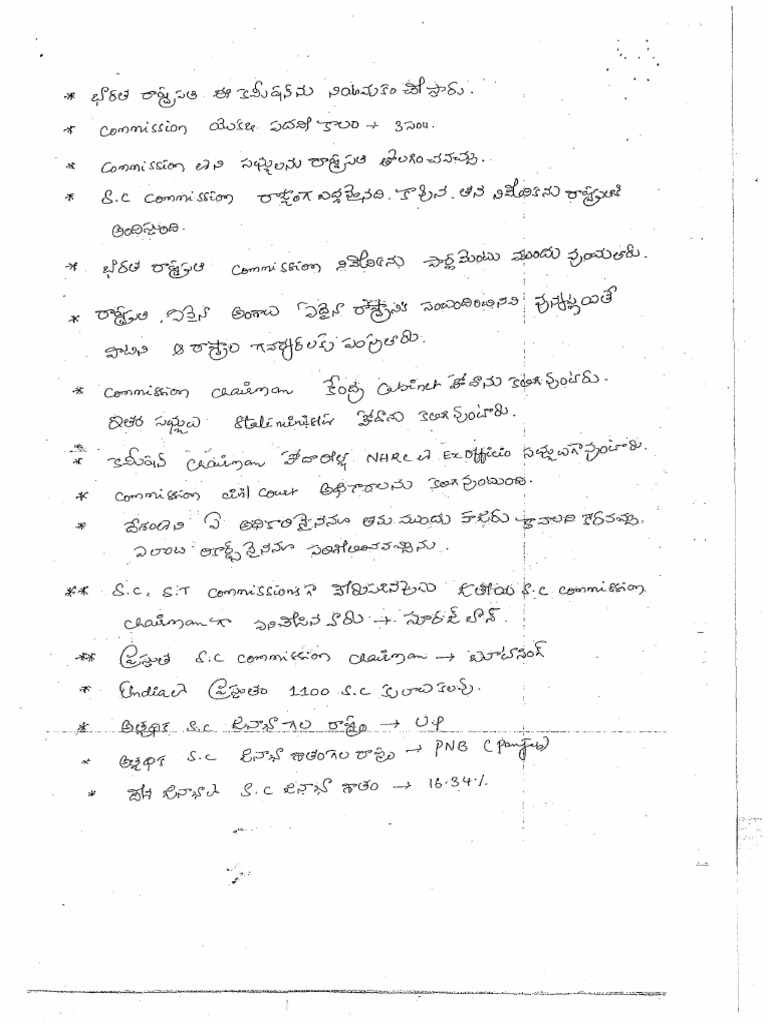 * భారత రాష్ట్రపతి ఈ కమీషన్‌ను నియామకం చేస్తారు.
* Commission యొక్క పదవీ కాలం → 3సం॥.
* Commission లోని సభ్యులను రాష్ట్రపతి తొలగించవచ్చు.
* S.C Commission రాజ్యాంగ బద్ధమైనది. కావున తన నివేదికను రాష్ట్రపతికి
అందిస్తుంది.
* భారత రాష్ట్రపతి Commission నివేదికను పార్లమెంటు ముందు వుంచుతారు.
* రాష్ట్రపతి, ఏవైనా అంశాలు ఏదైనా రాష్ట్రానికి సంబంధించినవి వున్నట్లయితే
వాటిని ఆ రాష్ట్రాల గవర్నర్‌లకు పంపుతారు.
* Commission Chairman కేంద్ర Cabinet హోదాను కలిగి వుంటారు.
ఇతర సభ్యులు State minister హోదాను కలిగి వుంటారు.
* కమీషన్ Chairman హోదారీత్యా NHRC లో Ex officio సభ్యుడుగా వుంటారు.
* Commission civil Court అధికారాలను కలిగి వుంటుంది.
* దేశంలోని ఏ అధికారినైనను తమ ముందు హాజరు కావాలని కోరవచ్చు.
ఎలాంటి రికార్డ్స్‌నైనను పరిశీలించవచ్చును.
** S.C, S.T Commissionsగా జాతీయ S.C Commission
Chairmanగా పనిచేసిన వారు → సూరజ్ భాన్.
** ప్రస్తుత S.C Commission Chairman → బూటాసింగ్
* Indiaలో ప్రస్తుతం 1100 S.C కులాలు కలవు.
* అత్యధిక S.C జనాభా గల రాష్ట్రం → U.P
* అత్యధిక S.C జనాభా శాతంగల రాష్ట్రం → PNB (Panjab)
* దేశ జనాభాలో S.C జనాభా శాతం → 16.34%.